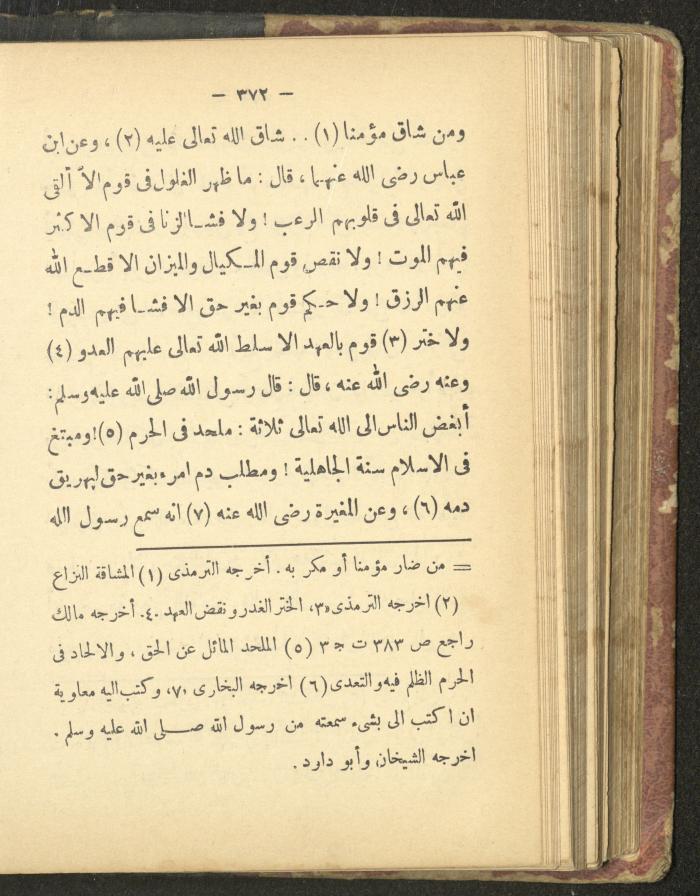 — ٣٧٢ —
ومن شاق مؤمنا (١) . . شاق الله تعالى عليه (٢) ، وعن ابن
عباس رضى الله عنهما ، قال : ما ظهر الغلول فى قوم الا ألقى
الله تعالى فى قلوبهم الرعب ! ولا فشا الزنا فى قوم الا كثر
فيهم الموت ! ولا نقص قوم المكيال والميزان الا قطع الله
عنهم الرزق ! ولا حكم قوم بغير حق الا فشا فيهم الدم !
ولا ختر (٣) قوم بالعهد الا سلط الله تعالى عليهم العدو (٤)
وعنه رضى الله عنه ، قال : قال رسول الله صلى الله عليه وسلم :
أبغض الناس الى الله تعالى ثلاثة : ملحد فى الحرم (٥) ! ومبتغ
فى الاسلام سنة الجاهلية ! ومطلب دم امرء بغير حق ليهريق
دمه (٦) ، وعن المغيرة رضى الله عنه (٧) انه سمع رسول الله
= من ضار مؤمنا أو مكر به . أخرجه الترمذى (١) المشاقة النزاع
(٢) اخرجه الترمذى «٣، الختر الغدر ونقض العهد .٤. أخرجه مالك
راجع ص ٣٨٣ ت ج ٣ (٥) الملحد المائل عن الحق ، والالحاد فى
الحرم الظلم فيه والتعدى (٦) اخرجه البخارى ،٧، وكتب اليه معاوية
ان اكتب الى بشىء سمعته من رسول الله صلى الله عليه وسلم .
اخرجه الشيخان وأبو داود .